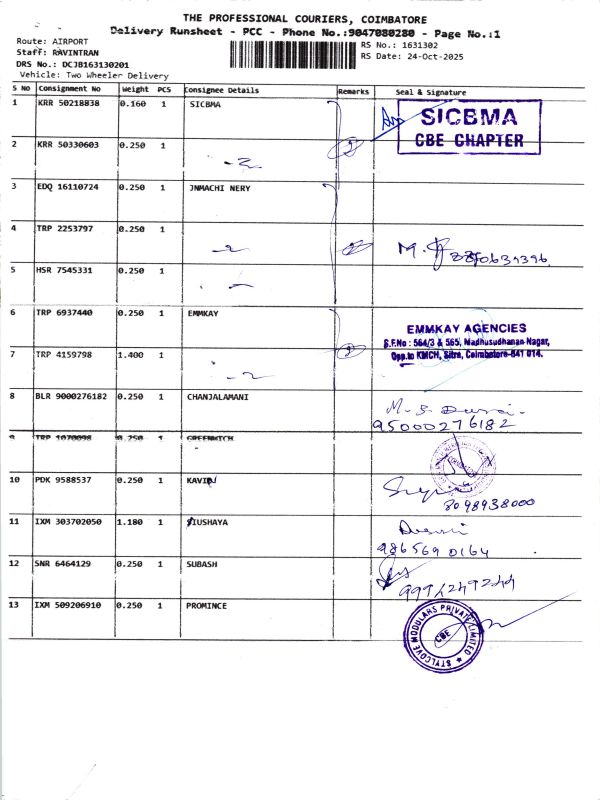 THE PROFESSIONAL COURIERS, COIMBATORE
Delivery Runsheet - PCC - Phone No.:9047080280 - Page No.:1
Route: AIRPORT
RS No.: 1631302
Staff: RAVINTRAN
RS Date: 24-Oct-2025
DRS No.: DCJB163130201
Vehicle: Two Wheeler Delivery
S No Consignment No Weight PCS Consignee Details Remarks Seal & Signature
1 KRR 50218838 0.160 1 SICBMA
SICBMA
CBE CHAPTER
2 KRR 50330603 0.250 1
2
3 EDQ 16110724 0.250 1 JNMACHI NERY
4 TRP 2253797 0.250 1
5 HSR 7545331 0.250 1
6 TRP 6937440 0.250 1 EMMKAY
EMMKAY AGENCIES
S.F.No : 564/3 & 565, Madhusudhanan Nagar,
Opp.to KMCH, Sitra, Coimbatore-641 014.
7 TRP 4159798 1.400 1
2
8 BLR 9000276182 0.250 1 CHANJALAMANI
95000276182
9 TRP 1070098 0.250 1 GREENWICH
10 PDK 9588537 0.250 1 KAVIN
8098938000
11 IXM 303702050 1.180 1 IUSHAYA
986569 0164
12 SNR 6464129 0.250 1 SUBASH
13 IXM 509206910 0.250 1 PROMINCE
STYLCOVE MODULARS PRIVATE LIMITED
CBE